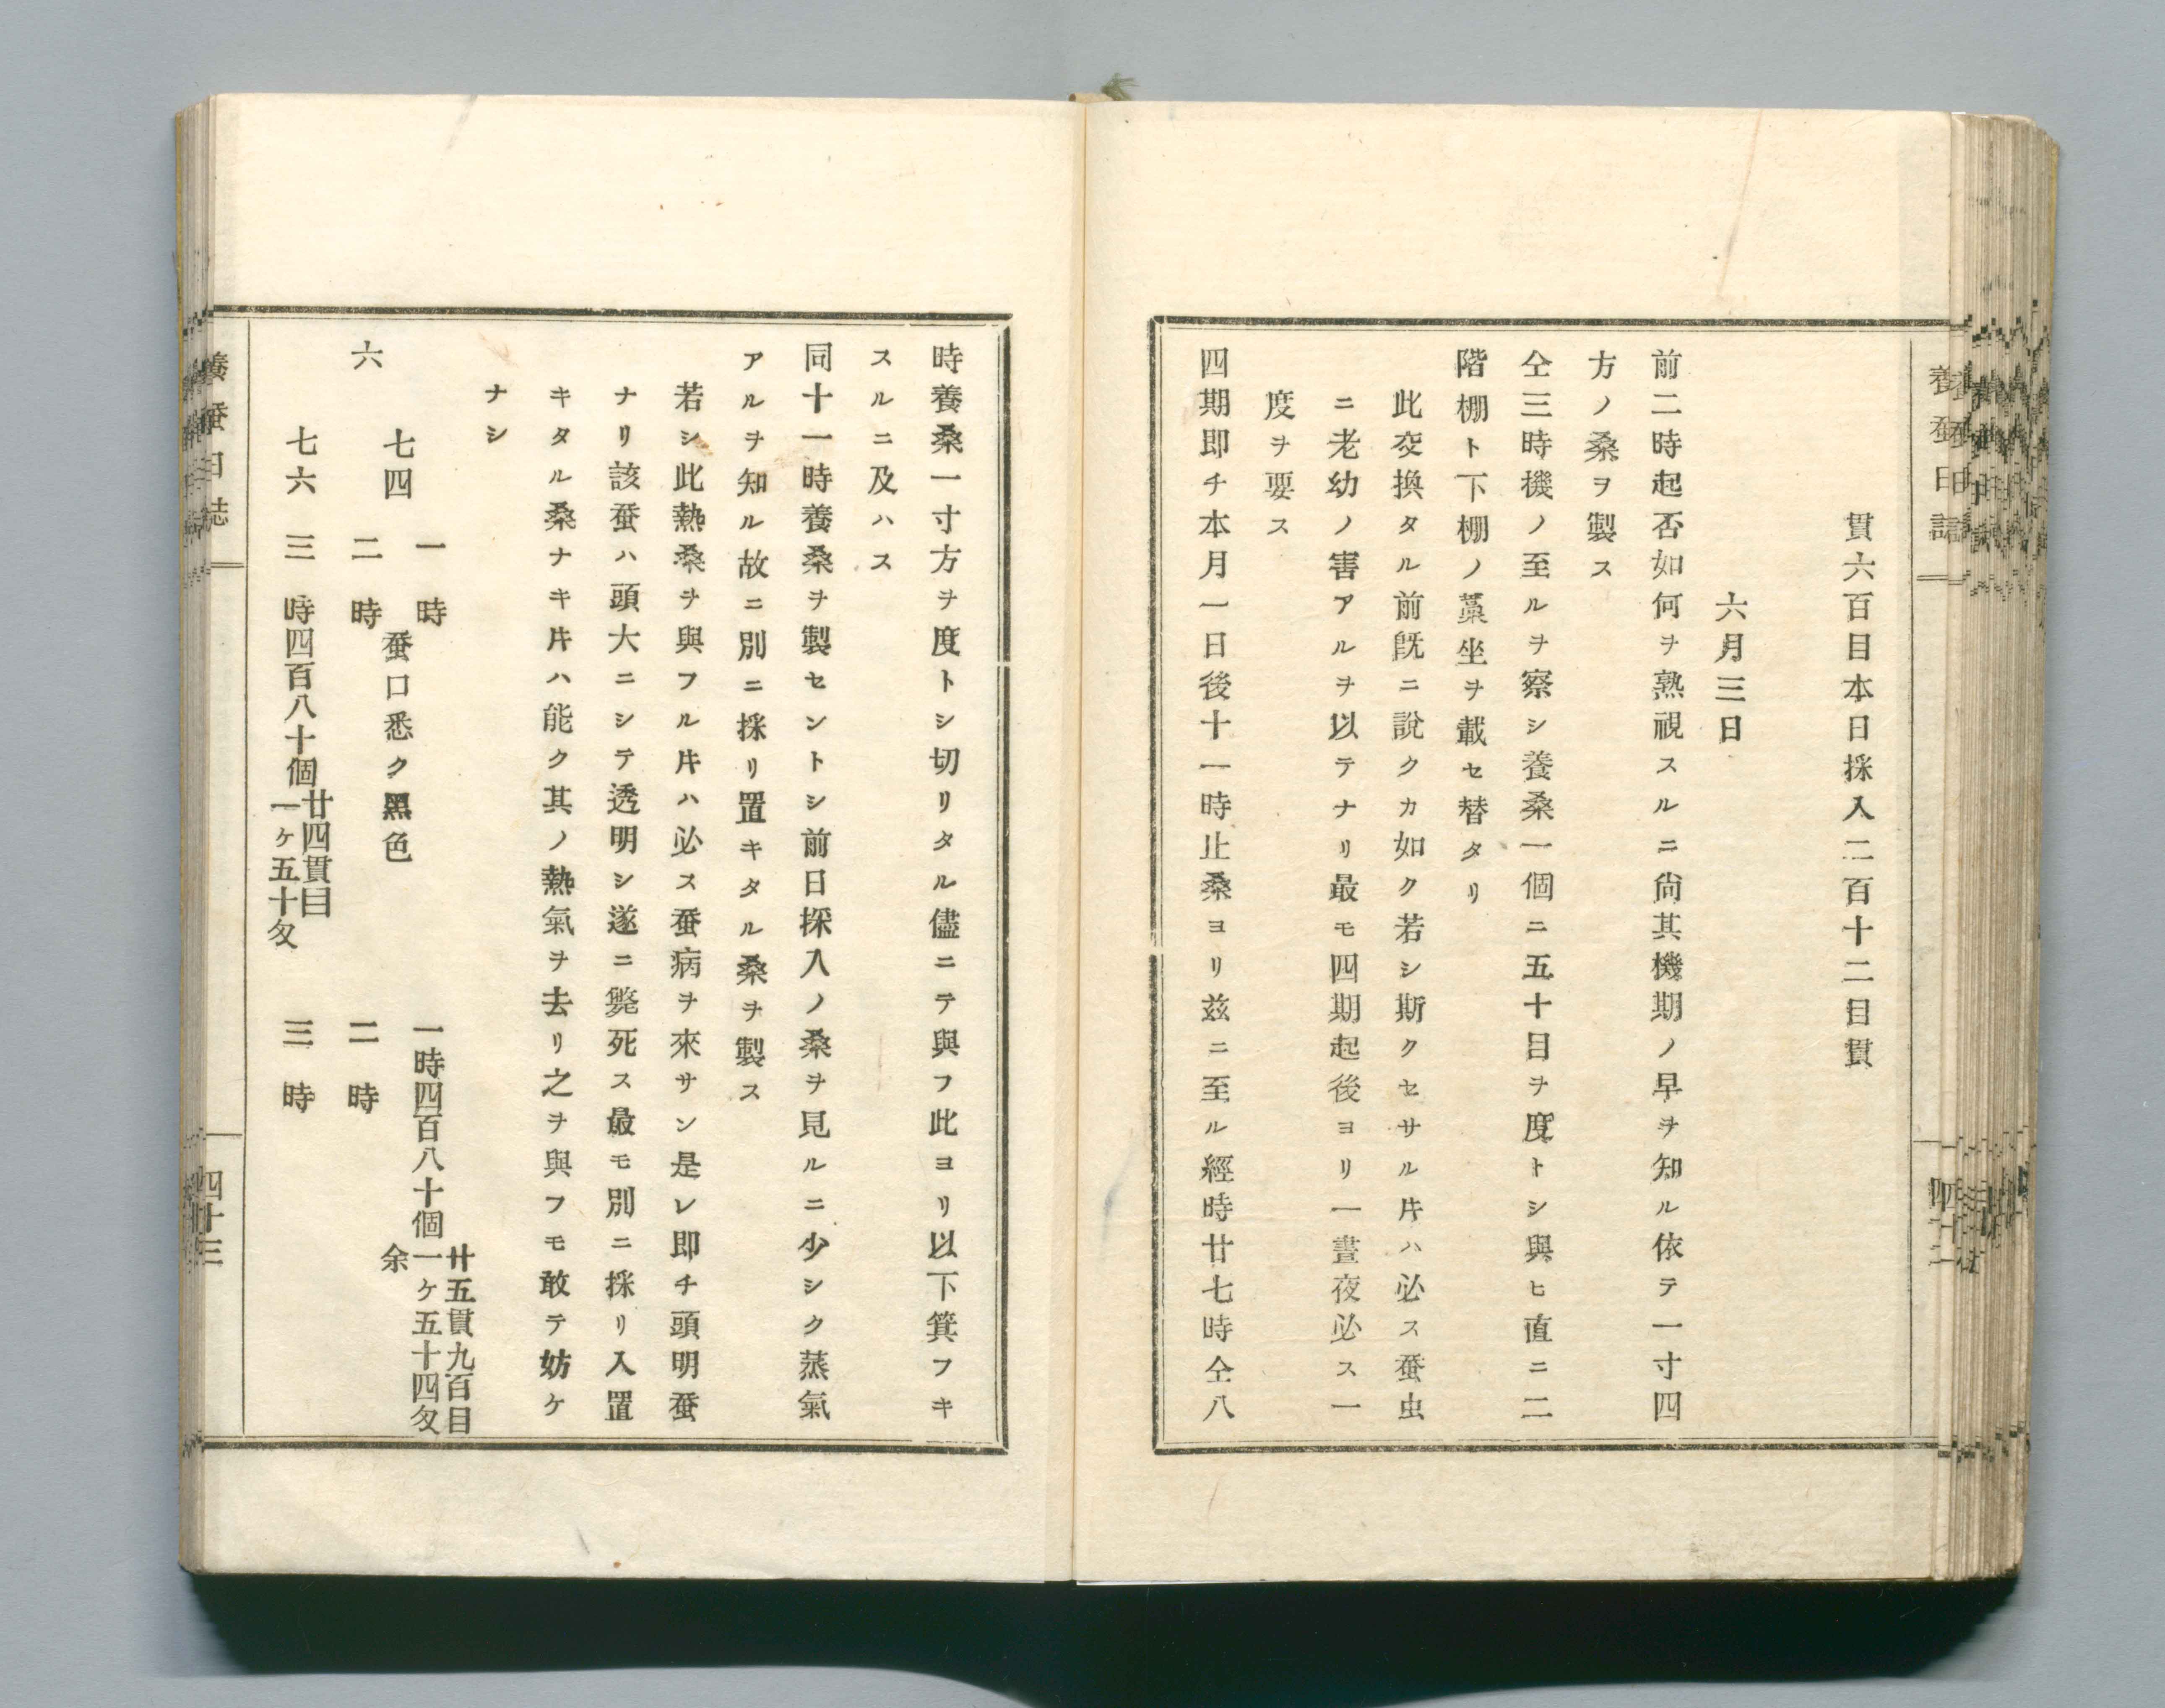 貫六百目本日採入二百十二目貫
六月三日
前二時起否如何ヲ熟視スルニ尙其機期ノ早ヲ知ル依テ一寸四
方ノ桑ヲ製ス
仝三時機ノ至ルヲ察シ養桑一個ニ五十目ヲ度トシ與ヒ直ニ二
階棚ト下棚ノ藁坐ヲ載セ替タリ
此交換タル前既ニ說クカ如ク若シ斯クセサル𪜈ハ必ス蚕虫
ニ老幼ノ害アルヲ以テナリ最モ四期起後ヨリ一晝夜必ス一
度ヲ要ス
四期即チ本月一日後十一時止桑ヨリ玆ニ至ル經時廿七時仝八
時養桑一寸方ヲ度トシ切リタル儘ニテ與フ此ヨリ以下箕フキ
スルニ及ハス
同十一時養桑ヲ製セントシ前日採入ノ桑ヲ見ルニ少シク蒸氣
アルヲ知ル故ニ別ニ採リ置キタル桑ヲ製ス
若シ此熱桑ヲ與フル𪜈ハ必ス蚕病ヲ來サン是レ即チ頭明蚕
ナリ該蚕ハ頭大ニシテ透明シ遂ニ斃死ス最モ別ニ採リ入置
キタル桑ナキ𪜈ハ能ク其ノ熱氣ヲ去リ之ヲ與フモ敢テ妨ケ
ナシ
一時
一時四百八十個
廿五貫九百目
一ケ五十四匁
余
六
七四
二時
蚕口悉ク黑色
二時
七六
三時四百八十個
廿四貫目
一ケ五十匁
三時
養蚕日誌
四十三